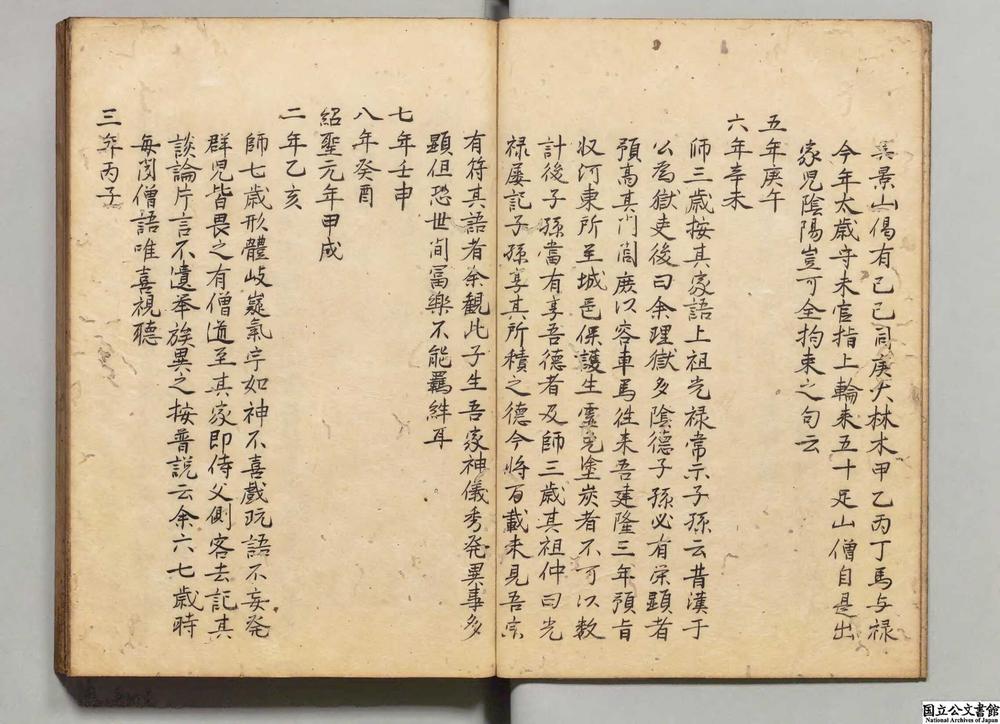 景山偈有己巳同庚大林木甲乙丙丁馬与禄
今年太歳守未官指上輪来五十足山僧自是出
家児陰陽豈可全拘束之句云
五年庚午
六年辛未
師三歳按其家語上祖光禄常示子孫云昔漢于
公為獄吏後曰余理獄多陰德子孫必有栄顕者
預高其門閭庶以容車馬徃来吾建隆三年預旨
収河東所至城邑保護生霊免塗炭者不可以数
計後子孫當有享吾德者及師三歳其祖仲曰光
禄屢記子孫享其所積之德今将百載未見吾宗
有符其語者余観此子生吾家神儀秀発異事多
顕但恐世間冨樂不能羈絆耳
七年壬申
八年癸酉
紹聖元年甲戌
二年乙亥
師七歳形體岐嶷氣宇如神不喜戯玩語不妄発
群児皆畏之有僧道至其家即侍父側客去記其
談論片言不遺挙族異之按普説云余六七歳時
毎閲僧語唯喜視聴
三年丙子
国立公文書館
National Archives of Japan